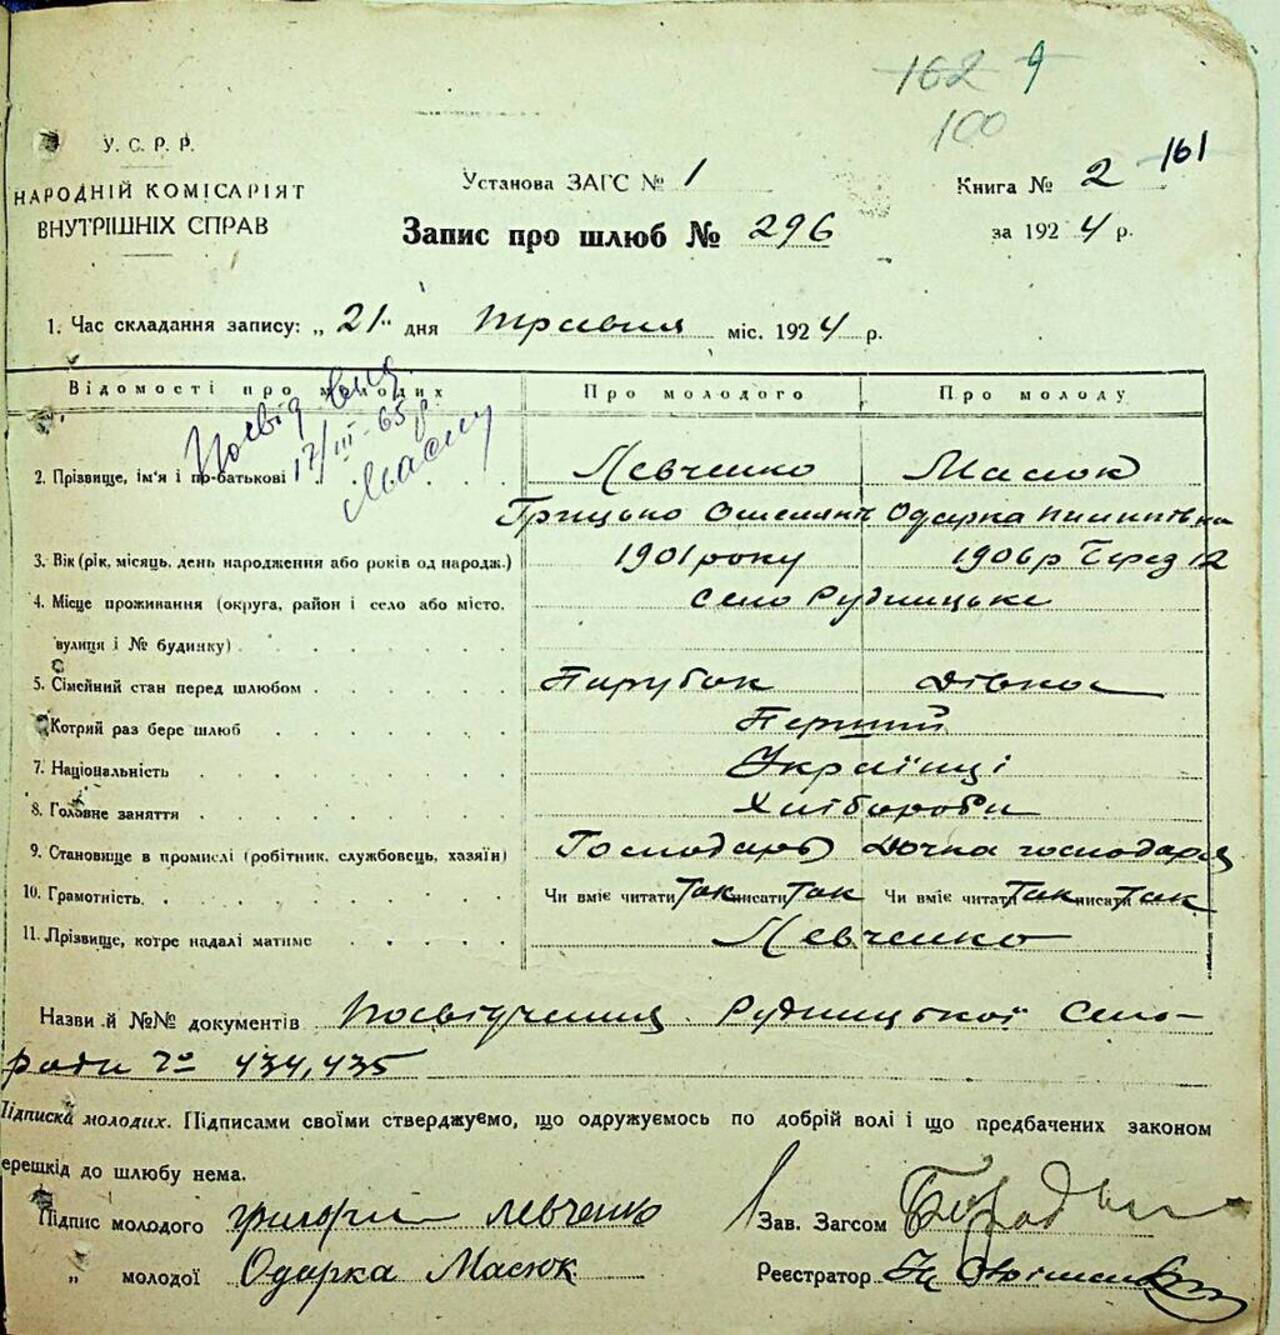 162 9
100
У. С. Р. Р.
НАРОДНІЙ КОМІСАРІЯТ
ВНУТРІШНІХ СПРАВ
Установа ЗАГС № 1
Книга № 2 161
Запис про шлюб № 296
за 1924 р.
1. Час складання запису: „21“ дня травня міс. 1924 р.
Відомості про молодих
Про молодого
Про молоду
17/III-65
2. Прізвище, ім'я і по-батькові
Левченко
Масюк
Грицько
Одарка Пилипівна
3. Вік (рік, місяць, день народження або років од народж.)
1901 року
1906 р Берез 12
4. Місце проживання (округа, район і село або місто,
село Рудницьке
вулиця і № будинку)
5. Сімейний стан перед шлюбом
Парубок
Дівка
Котрий раз бере шлюб
Перший
7. Національність
Українці
8. Головне заняття
Хлібороби
9. Становище в промислі (робітник, службовець, хазяїн)
Господарь
Дочка господаря
10. Грамотність.
Чи вміє читати Так писати Так
Чи вміє читати Так писати Так
11. Прізвище, котре надалі матиме
Левченко
Назви й №№ документів Посвідчення Рудницької Сель-
ради № 434, 435
Підписка молодих. Підписами своїми стверджуємо, що одружуємось по добрій волі і що предбачених законом
ерешкід до шлюбу нема.
Підпис молодого Григорій Левченко
Зав. Загсом
„ молодої Одарка Масюк
Реєстратор